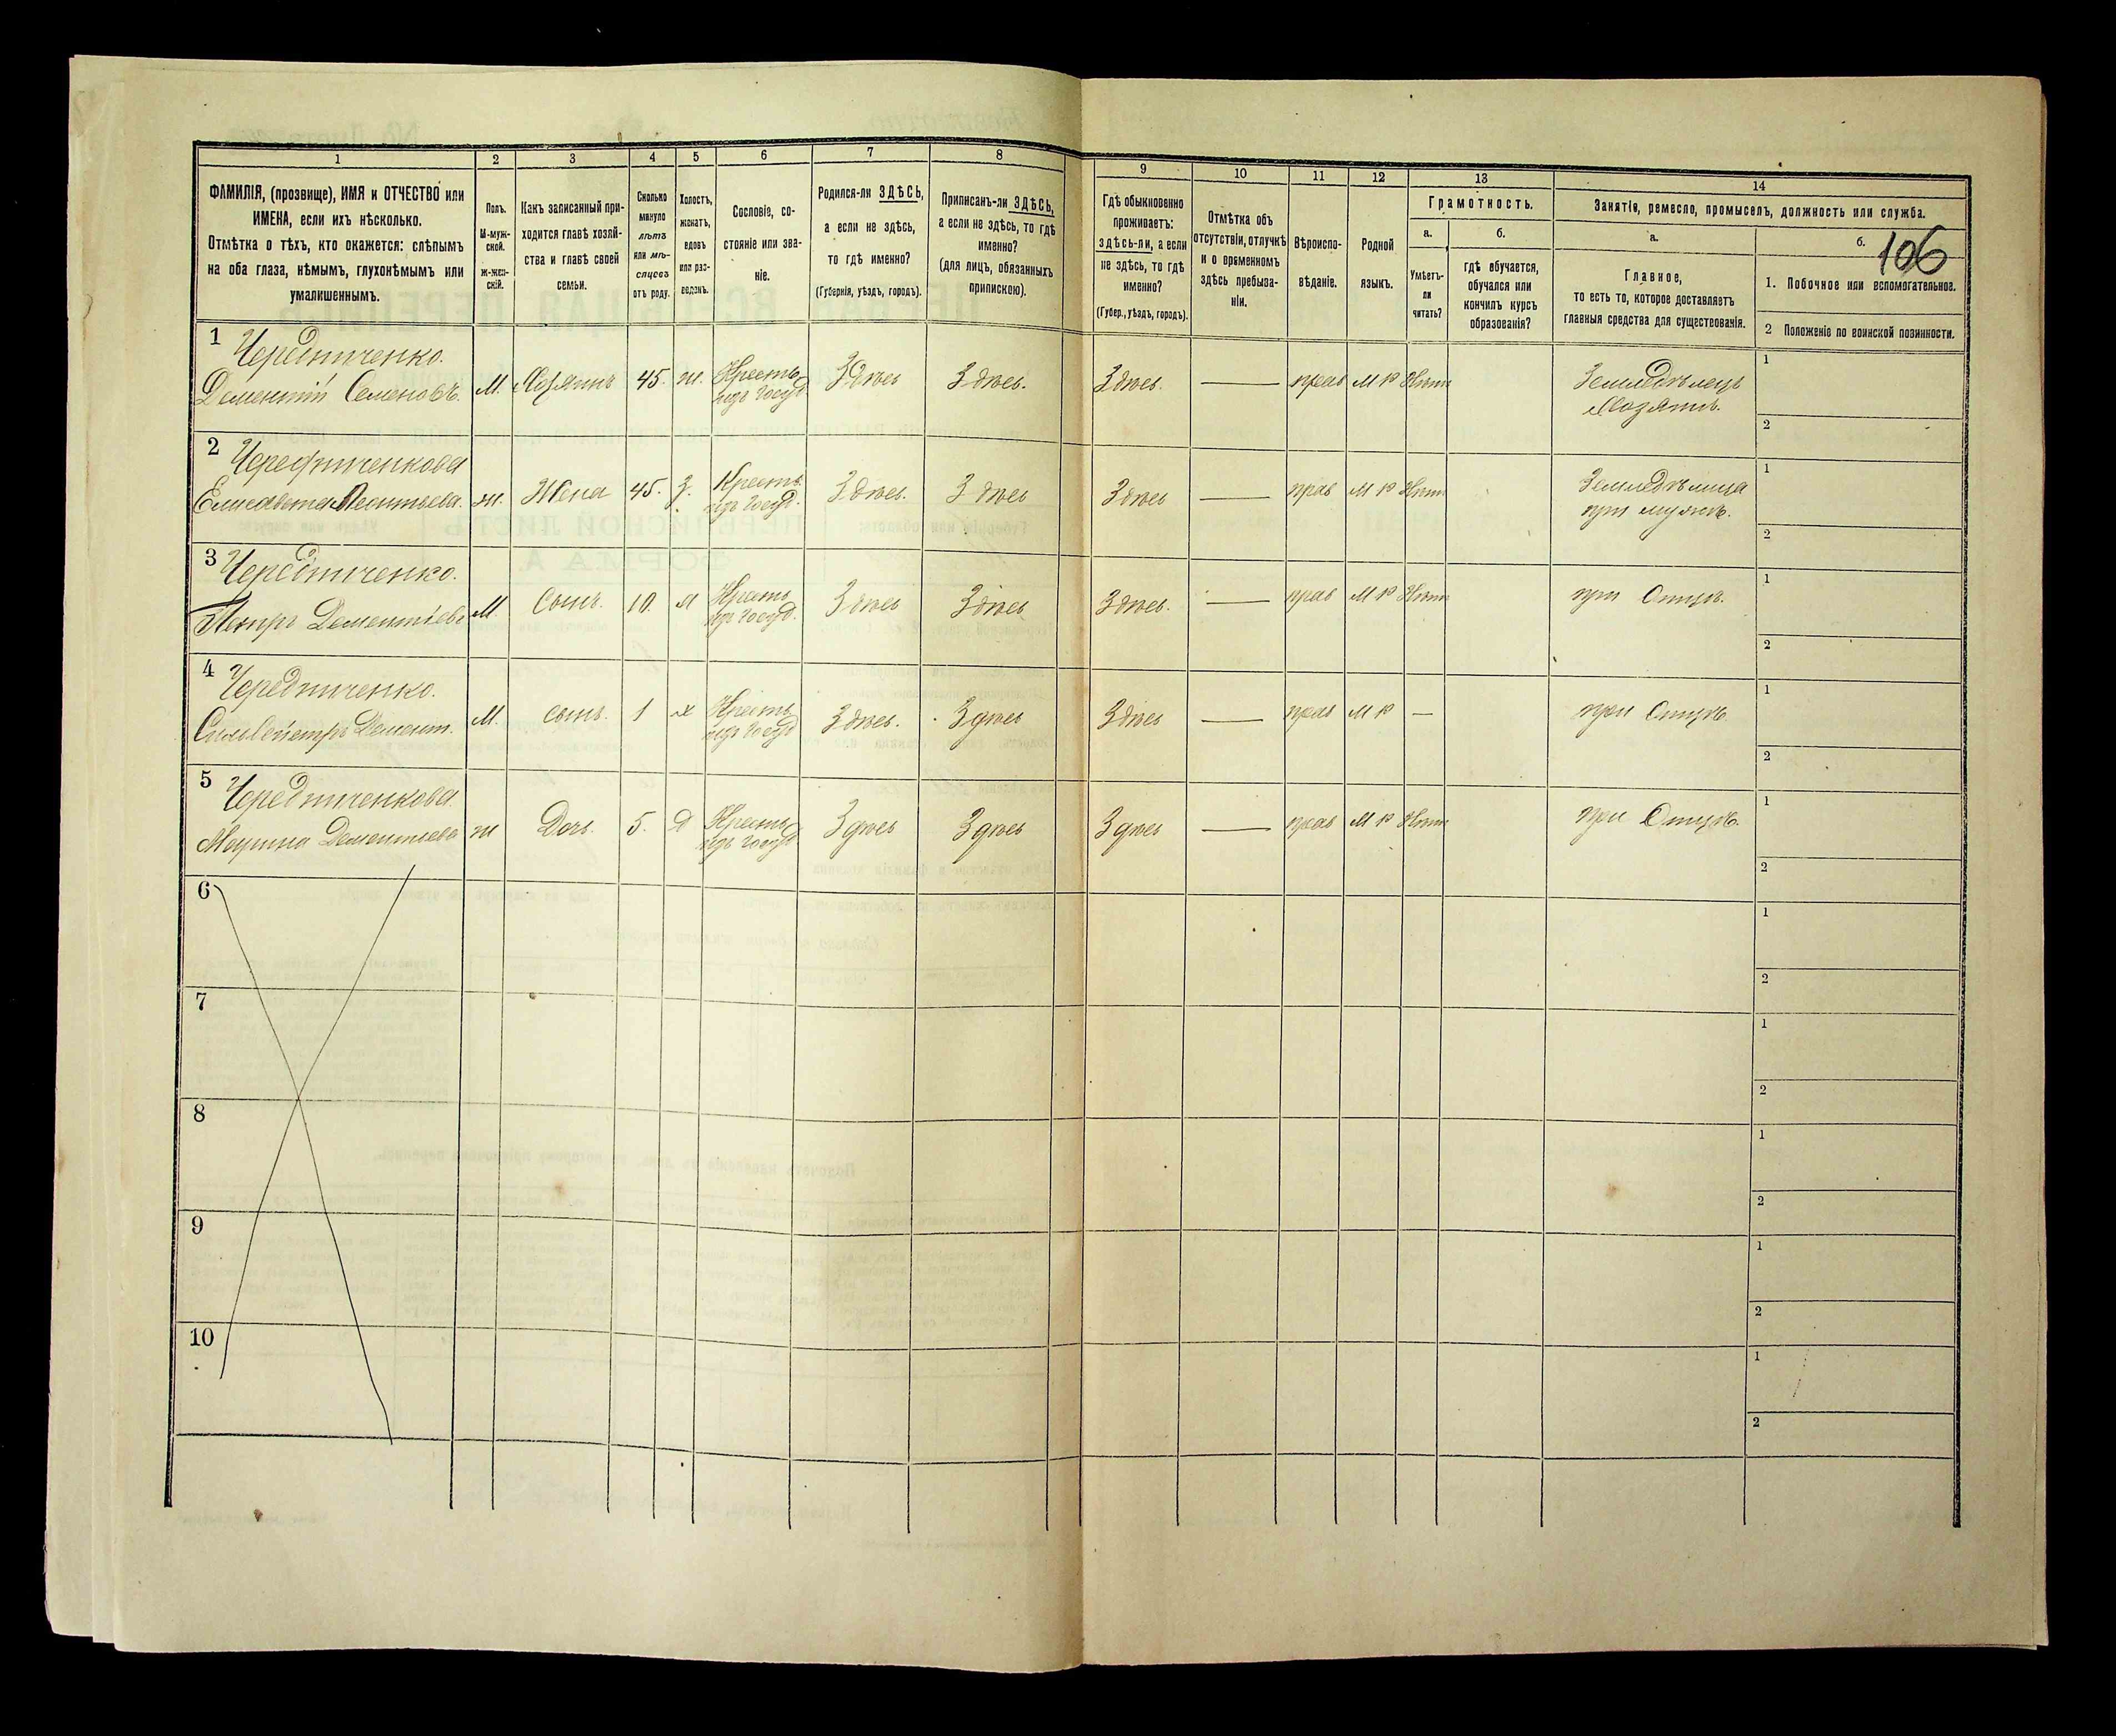 1
2
3
4
5
6
7
8
9
10
11
12
13
14
ФАМИЛІЯ, (прозвище), ИМЯ и ОТЧЕСТВО или
ИМЕНА, если ихъ нѣсколько.
Отмѣтка о тѣхъ, кто окажется: слѣпымъ
на оба глаза, нѣмымъ, глухонѣмымъ или
умалишеннымъ.
Полъ.
М-муж-
ской.
ж-жен-
скій.
Какъ записанный при-
ходится главѣ хозяй-
ства и главѣ своей
семьи.
Сколько
минуло
лѣтъ
или мѣ-
сяцевъ
отъ роду.
Холостъ,
женатъ,
вдовъ
или раз-
веденъ.
Сословіе, со-
стояніе или зва-
ніе.
Родился-ли ЗДѢСЬ,
а если не здѣсь,
то гдѣ именно?
(Губернія, уѣздъ, городъ).
Приписанъ-ли ЗДѢСЬ,
а если не здѣсь, то гдѣ
именно?
(для лицъ, обязанныхъ
припискою).
Гдѣ обыкновенно
проживаетъ:
здѣсь-ли, а если
не здѣсь, то гдѣ
именно?
(Губер., уѣздъ, городъ).
Отмѣтка объ
отсутствіи, отлучкѣ
и о временномъ
здѣсь пребыва-
ніи.
Вѣроиспо-
вѣданіе.
Родной
языкъ.
Грамотность.
а.
Умѣетъ-
ли
читать?
б.
гдѣ обучается,
обучался или
кончилъ курсъ
образованія?
Занятіе, ремесло, промыселъ, должность или служба.
а.
Главное,
то есть то, которое доставляетъ
главныя средства для существованія.
б.
106
1. Побочное или вспомогательное.
2 Положеніе по воинской повинности.
1 Чередниченко.
Дементій Семеновъ. М. Хозяинъ 45. ж. Крестьян. Здѣсь Здѣсь. Здѣсь. — прав М Р Нѣтъ Земледѣлецъ 1
изъ госуд. Хозяинъ. 2
2 Чередниченкова
Елисавета Леонтьева. ж. Жена 45. З. Крестьян. Здѣсь. Здѣсь Здѣсь — прав М Р Нѣтъ Земледѣлица 1
изъ госуд. при мужѣ. 2
3 Чередниченко.
Петръ Дементіевъ М Сынъ. 10. Х Крестьян. Здѣсь Здѣсь Здѣсь. — прав М Р Нѣтъ при Отцѣ. 1
изъ госуд. 2
4 Чередниченко.
Сильвестръ Демент. М. сынъ. 1 х Крестьян. Здѣсь. Здѣсь Здѣсь — прав М Р — при Отцѣ. 1
изъ госуд. 2
5 Чередниченкова
Марина Дементьева ж Дочь. 5. Д Крестьян. Здѣсь Здѣсь Здѣсь — прав М Р Нѣтъ при Отцѣ. 1
изъ госуд. 2
6 1
2
7 1
2
8 1
2
9 1
2
10 1
2